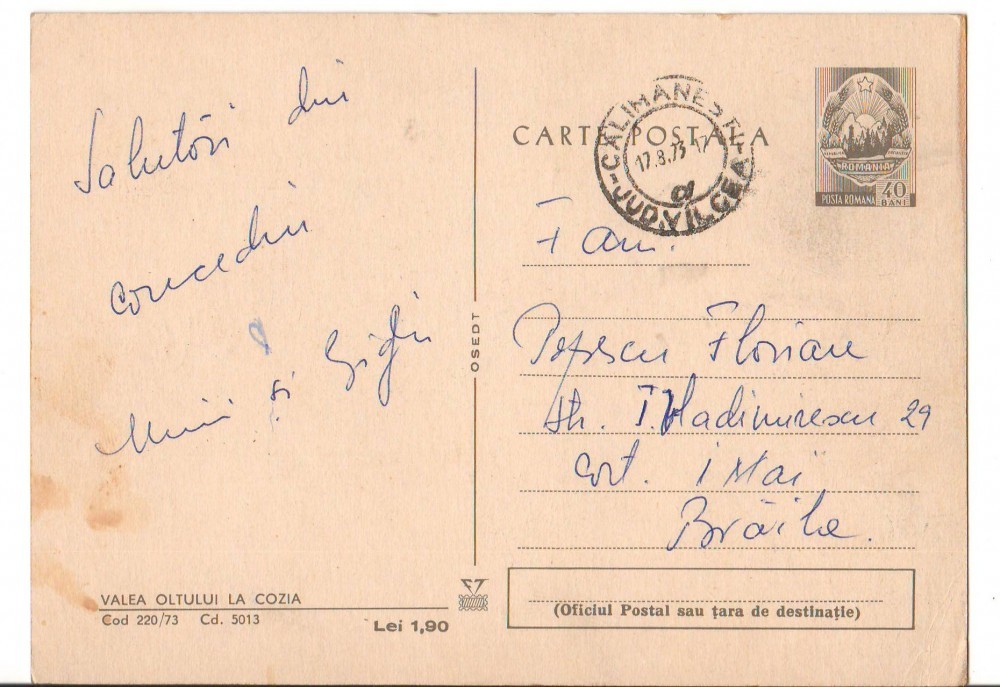 Salutări din
concediu
Mimi și Gigi
VALEA OLTULUI LA COZIA
Cod 220/73 Cd. 5013
Lei 1,90
OSEDT
CARTE POSTALA
CALIMANESTI
17.8.73 17
a
JUD. VÎLCEA
ROMANIA
POSTA ROMANA
40
BANI
Fam.
Popescu Floriane
str. T. Vladimirescu 29
cort. 1 Mai
Brăila.
(Oficiul Postal sau țara de destinație)